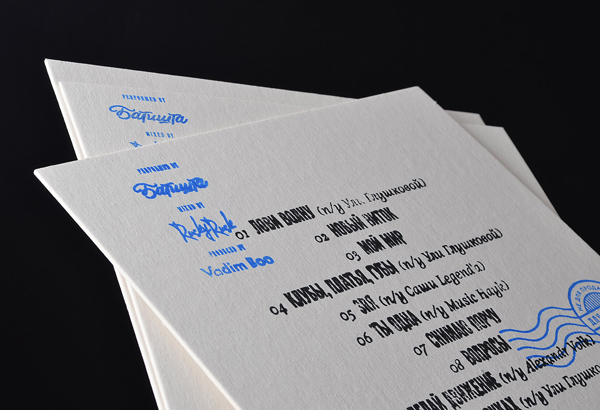 PERFORMED BY
Батишта
MIXED BY
PERFORMED BY
Батишта
MIXED BY
RuckyRuck
PRODUCED BY
Vadim Boo
01 ЛОВИ ВОЛНУ (п/у Ули Глушковой)
02 НОВЫЙ ВИТОК
03 МОЙ МИР
04 КЛУБЫ, ПЛАТЬЯ, ГУБЫ (п/у Ули Глушковой)
05 ЗРЯ (п/у Саши Legend'z)
06 ТЫ ОДНА (п/у Music Hayk)
07 СНИМАЮ ПОРЧУ
08 ВОПРОСЫ
ДВИЖЕНИЕ (п/у Alexandr
(п/у Ули Глушко